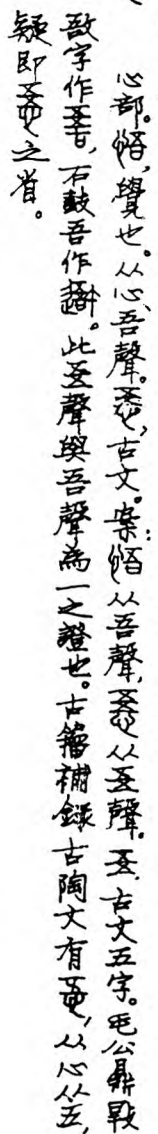 心部。悟,覺也。从心、吾聲。㤳,古文。案:悟从吾聲,㤳从㐏聲。㐏,古文五字。毛公鼎敔
敔字作𢾅,石鼓吾作䢩。此㐏聲與吾聲為一之證也。古籀補錄古陶文有㤳,从心从五,
疑即㤳之省。